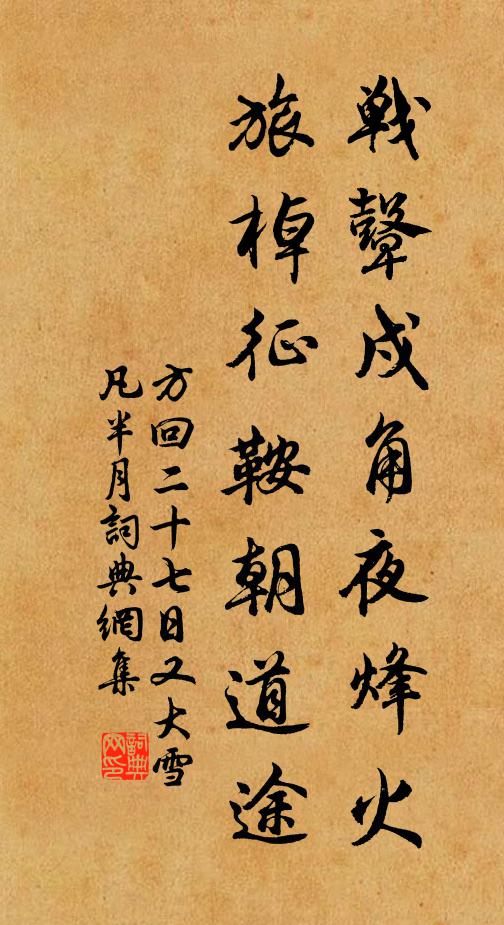 戰鼙戍角夜烽火
旅棹征鞍朝道途
方回二十七日又大雪
凡半月詞典網集
詞典
网印